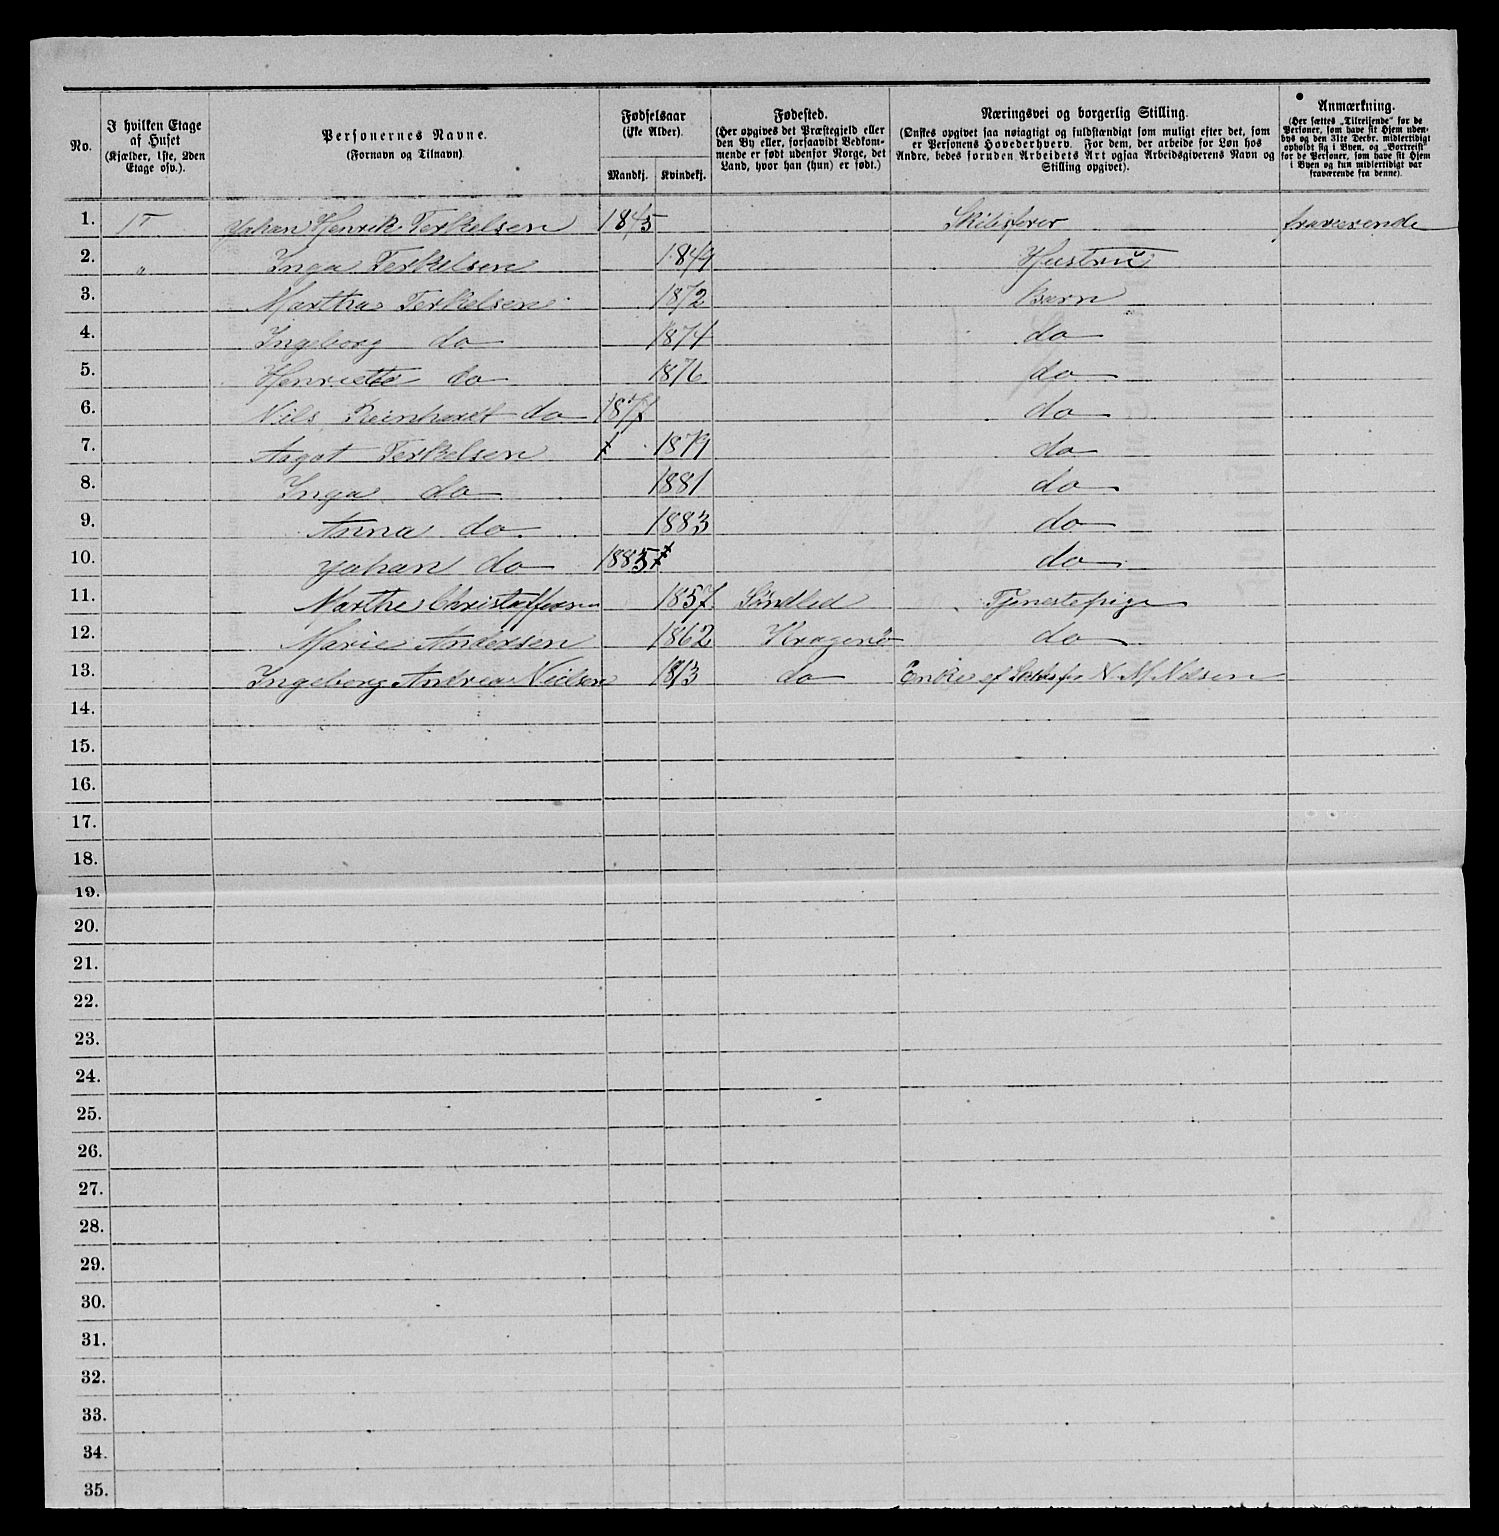 No.
I hvilken Etage af Huset (Kjælder, 1ste, 2den Etage osv.).
Personernes Navne. (Fornavn og Tilnavn)
Fødselsaar (Ikke Alder).
Mandkj. Kvindekj.
Fødested. (Her opgives det Præstegjeld eller den By eller, forsaavidt Vedkommende er født udenfor Norge, det Land, hvor han (hun) er født.)
Næringsvei og borgerlig Stilling. (Ønskes opgivet saa nøiagtigt og fuldstændigt som muligt efter det, som er Personens Hovederhverv. For dem, der arbeide for Løn hos Andre, bedes foruden Arbeidets Art ogsaa Arbeidsgiverens Navn og Stilling opgivet).
Anmærkning. (Her sættes „Tilreisende" for de Personer, som have sit Hjem udenbys og den 31te Decbr. midlertidigt opholdt sig i Byen, og „Bortreist" for de Personer, som have sit Hjem i Byen og kun midlertidigt var fraværende fra denne).
1. 1T Yohan Henrik Terkelsen 1845 Skibsfører fraverende
2. " Inga Terkelsen 1849 Hustru
3. Martha Terkelsen 1872 Barn
4. Ingeborg do 1874 do
5. Henriette do 1876 do
6. Nils Reinhardt do 1877 do
7. Aagot Terkelsen 1879 do
8. Inga do 1881 do
9. Anna do 1883 do
10. Yohan do 1885 do
11. Marthe Christoffersen 1857 Søndled Tjenestepige
12. Marie Andersen 1862 Kragerø do
13. Ingeborg Andrea Nielsen 1813 do Enke af N M Nilsen
14.
15.
16.
17.
18.
19.
20.
21.
22.
23.
24.
25.
26.
27.
28.
29.
30.
31.
32.
33.
34.
35.